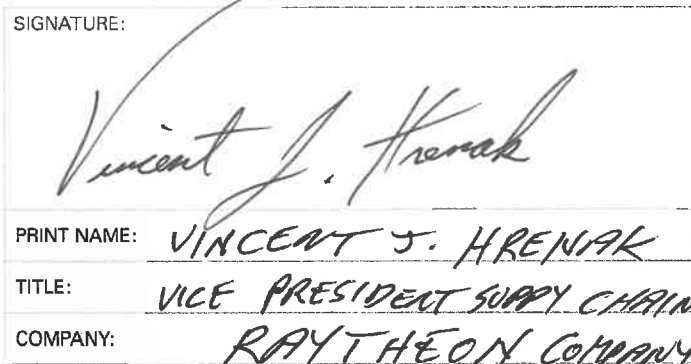 SIGNATURE:
Vincent J. Hrenak
PRINT NAME: VINCENT J. HRENAK
TITLE: VICE PRESIDENT SUPPY CHAIN
COMPANY: RAYTHEON COMPANY